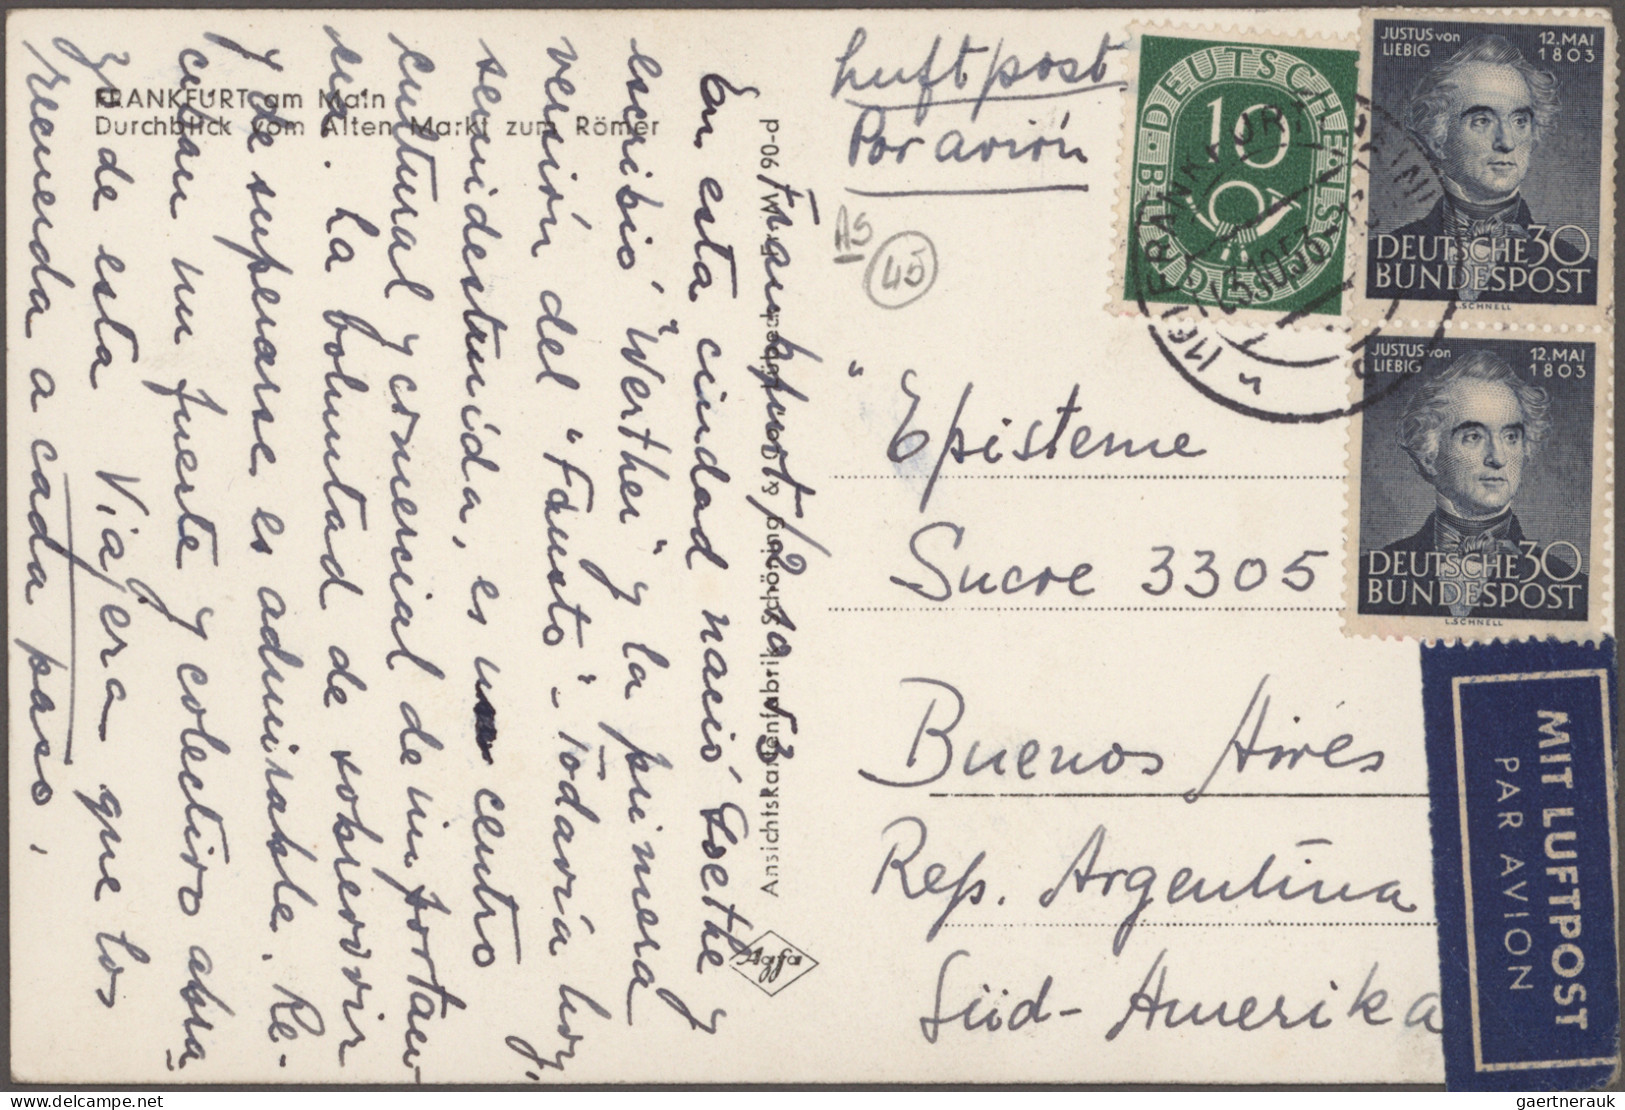 FRANKFURT am Main
Durchblick vom Alten Markt zum Römer
Frankfurt/2.10.53
En esta ciudad nació Goethe y
escribió "Werther" y la primera
versión del "Fausto". Todavía hoy,
semidestruida, es un centro
cultural y comercial de importan-
cia. La boluntad de sobrevivir
y de superarse es admirable. Re-
cuerda a cada paso.
zo de esta Viajera que los
Ansichtskartenfabrik Schöning & Co
Agfa
Luftpost
Por avión
AS
45
"Episteme
Sucre 3305
Buenos Aires
Rep. Argentina
Süd-Amerika
DEUTSCHE BUNDESPOST
10
JUSTUS von LIEBIG
12. MAI 1803
DEUTSCHE 30
BUNDESPOST
L.SCHNELL
JUSTUS von LIEBIG
12. MAI 1803
DEUTSCHE 30
BUNDESPOST
L.SCHNELL
MIT LUFTPOST
PAR AVION
gaertnerauk